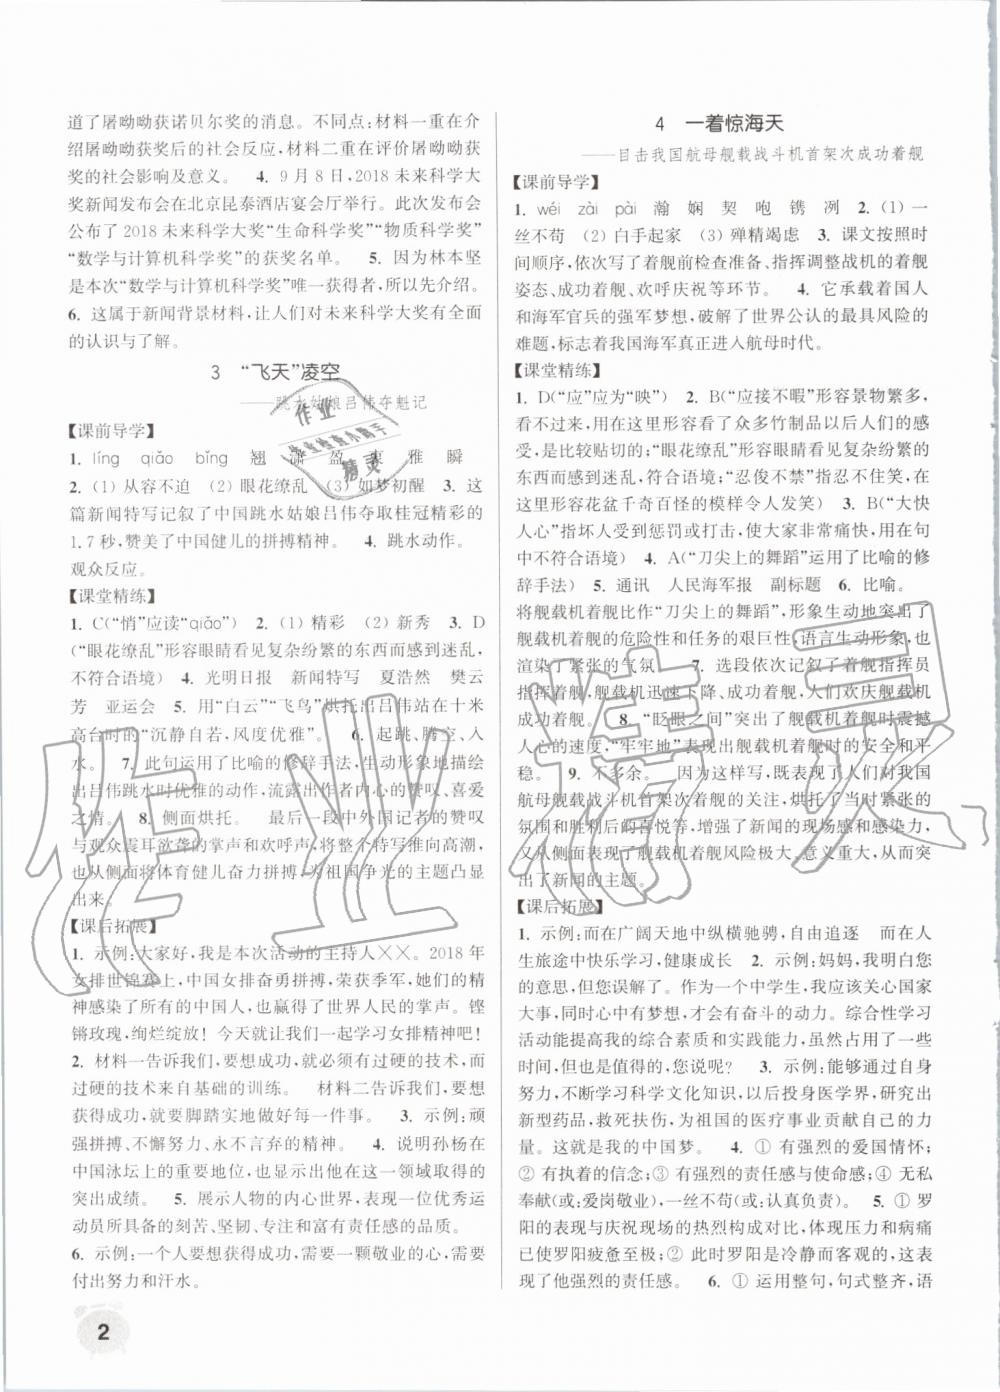 道了屠呦呦获诺贝尔奖的消息。不同点:材料一重在介
绍屠呦呦获奖后的社会反应,材料二重在评价屠呦呦获
奖的社会影响及意义。 4. 9月8日,2018未来科学大
奖新闻发布会在北京昆泰酒店宴会厅举行。此次发布会
公布了2018未来科学大奖“生命科学奖”“物质科学奖”
“数学与计算机科学奖”的获奖名单。 5. 因为林本坚
是本次“数学与计算机科学奖”唯一获得者,所以先介绍。
6. 这属于新闻背景材料,让人们对未来科学大奖有全面
的认识与了解。
3 “飞天”凌空
——跳水姑娘吕伟夺魁记
【课前导学】
1. líng qiǎo bǐng 翘 潇 盈 束 雅 瞬
2. (1) 从容不迫 (2) 眼花缭乱 (3) 如梦初醒 3. 这
篇新闻特写记叙了中国跳水姑娘吕伟夺取桂冠精彩的
1.7秒,赞美了中国健儿的拼搏精神。 4. 跳水动作。
观众反应。
【课堂精练】
1. C(“悄”应读“qiǎo”) 2. (1) 精彩 (2) 新秀 3. D
(“眼花缭乱”形容眼睛看见复杂纷繁的东西而感到迷乱,
不符合语境) 4. 光明日报 新闻特写 夏浩然 樊云
芳 亚运会 5. 用“白云”“飞鸟”烘托出吕伟站在十米
高台时的“沉静自若,风度优雅”。 6. 起跳、腾空、入
水。 7. 此句运用了比喻的修辞手法,生动形象地描绘
出吕伟跳水时优雅的动作,流露出作者内心的赞叹、喜爱
之情。 8. 侧面烘托。 最后一段中外国记者的赞叹
与观众震耳欲聋的掌声和欢呼声,将整个特写推向高潮,
也从侧面将体育健儿奋力拼搏、为祖国争光的主题凸显
出来。
【课后拓展】
1. 示例:大家好,我是本次活动的主持人××。2018年
女排世锦赛上,中国女排奋勇拼搏,荣获季军,她们的精
神感染了所有的中国人,也赢得了世界人民的掌声。铿
锵玫瑰,绚烂绽放! 今天就让我们一起学习女排精神吧!
2. 材料一告诉我们,要想成功,就必须有过硬的技术,而
过硬的技术来自基础的训练。 材料二告诉我们,要想
获得成功,就要脚踏实地做好每一件事。 3. 示例:顽
强拼搏、不懈努力、永不言弃的精神。 4. 说明孙杨在
中国泳坛上的重要地位,也显示出他在这一领域取得的
突出成绩。 5. 展示人物的内心世界,表现一位优秀运
动员所具备的刻苦、坚韧、专注和富有责任感的品质。
6. 示例:一个人要想获得成功,需要一颗敬业的心,需要
付出努力和汗水。
2
4 一着惊海天
——目击我国航母舰载战斗机首架次成功着舰
【课前导学】
1. wéi zài pài 瀚 娴 契 咆 镌 冽 2. (1) 一
丝不苟 (2) 白手起家 (3) 殚精竭虑 3. 课文按照时
间顺序,依次写了着舰前检查准备、指挥调整战机的着舰
姿态、成功着舰、欢呼庆祝等环节。 4. 它承载着国人
和海军官兵的强军梦想,破解了世界公认的最具风险的
难题,标志着我国海军真正进入航母时代。
【课堂精练】
1. D(“应”应为“映”) 2. B(“应接不暇”形容景物繁多,
来不及观赏。用在这里形容看了众多竹制品的感受,
是比较贴切的;“眼花缭乱”形容眼睛看见复杂纷繁的
东西而感到迷乱,符合语境;“忍俊不禁”指忍不住笑,在
这里形容花盆千奇百怪的模样令人发笑) 3. B(“大快
人心”指坏人受到惩罚或打击,使大家非常痛快,用在句
中不符合语境) 4. A(“刀尖上的舞蹈”运用了比喻的修
辞手法) 5. 通讯 人民海军报 副标题 6. 比喻。
将舰载机着舰比作“刀尖上的舞蹈”,形象生动地突出了
舰载机着舰的危险性和任务的艰巨性,语言生动形象,也
渲染了紧张的气氛。 7. 选段依次记叙了着舰指挥员
指挥着舰、舰载机迅速下降、成功着舰,人们欢庆舰载机
成功着舰。 8. “眨眼之间”突出了舰载机着舰时震撼
人心的速度,“牢牢地”表现出舰载机着舰时的安全和平
稳。 9. 不多余。 因为这样写,既写出了人们对我国
航母舰载战斗机首架次着舰的关注,烘托了当时紧张的
氛围和胜利后的喜悦等,增强了新闻的现场感和感染力,
又从侧面表现了舰载机着舰风险极大、意义重大,从而突
出了新闻的主题。
【课后拓展】
1. 示例:而在广阔天地中纵横驰骋,自由追逐 而在人
生旅途中快乐学习,健康成长 2. 示例:妈妈,我明白您
的意思,但您误解了。作为一个中学生,我应该关心国家
大事,同时心中有梦想,才会有奋斗的动力。综合性学习
活动能提高我的综合素质和实践能力。虽然占用了一些
时间,但也是值得的,您说呢? 3. 示例:能够通过自身
努力,不断学习科学文化知识,以后投身医学界,研究出
新型药品,救死扶伤,为祖国的医疗事业贡献自己的力
量。这就是我的中国梦。 4. ① 有强烈的爱国情怀;
② 有执着的信念;③ 有强烈的责任感与使命感;④ 无私
奉献(或:爱岗敬业),一丝不苟(或:认真负责)。 5. ① 罗
阳的表现与庆祝现场的热烈构成对比,体现压力和病痛
已使罗阳疲惫至极;② 此时罗阳是冷静而克制的,这表
现了他强烈的责任感。 6. ① 运用整句,句式整齐,语
作业
作业检查小助手
精灵
作业精灵